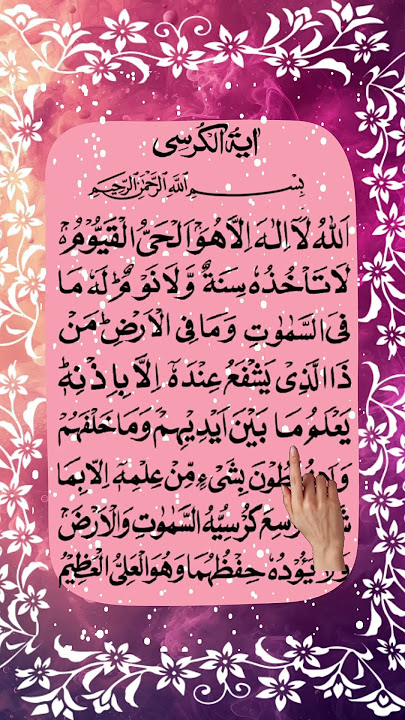 اٰیة الکرسی
بِسْمِ اللهِ الرَّحْمٰنِ الرَّحِيْمِ
اَللهُ لَآ اِلٰهَ اِلَّا هُوَ اَلْحَیُّ الْقَیُّوْمُ ۚ
لَا تَاْخُذُهٗ سِنَةٌ وَّلَا نَوْمٌ ؕ لَهٗ مَا
فِی السَّمٰوٰتِ وَمَا فِی الْاَرْضِ ؕ مَنْ
ذَا الَّذِیْ یَشْفَعُ عِنْدَهٗۤ اِلَّا بِاِذْنِهٖ ؕ
یَعْلَمُ مَا بَیْنَ اَیْدِیْهِمْ وَمَا خَلْفَهُمْ
بِشَیْءٍ مِّنْ عِلْمِهٖۤ اِلَّا بِمَا
كُرْسِیُّهُ السَّمٰوٰتِ وَالْاَرْضَ
یَـُٔوْدُهٗ حِفْظُهُمَا وَهُوَ الْعَلِیُّ الْعَظِیْمُ